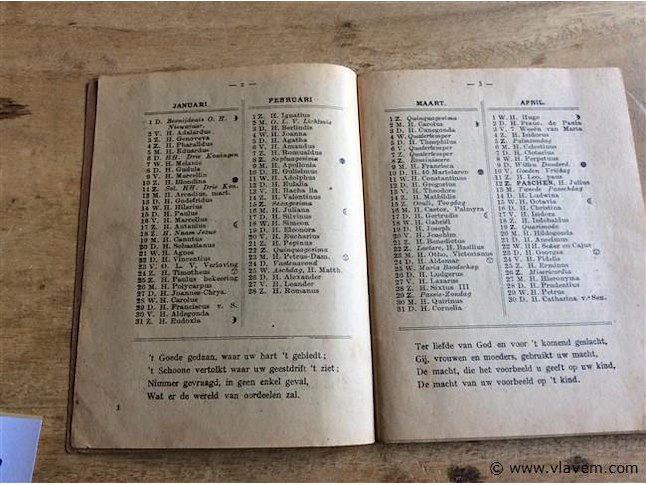 — 2 —
JANUARI.
1 D. Besnijdenis O. H.
Nieuwjaar.
2 V. H. Adalardus
3 Z. H. Genoveva
4 Z. H. Pharaildus
5 M. H. Eduardus
6 D. HH. Drie Koningen
7 W. H. Melanie
8 D. H. Gudula
9 V. H. Marcellin
10 Z. H. Blondina
11 Z. Sol. HH. Drie Kon.
12 M. H. Arcadius, mart.
13 D. H. Godefridus
14 W. H. Hilarius
15 D. H. Paulus
16 V. H. Marcellus
17 Z. H. Antonius
18 Z. H. Naam Jezus
19 M. H. Canutus
20 D. H. Sebastianus
21 W. H. Agnes
22 D. H. Vincentius
23 V. O. L. V. Verloving
24 Z. H. Timotheus
25 Z. H. Paulus bekeering
26 M. H. Polycarpus
27 D. H. Joannes-Chrys.
28 W. H. Carolus
29 D. H. Franciscus v. S.
30 V. H. Aldegonda
31 Z. H. Eudoxia
FEBRUARI
1 Z. H. Ignatius
2 M. O. L. V. Lichtmis
3 D. H. Berlindis
4 W. H. Joanna
5 D. H. Agatha
6 V. H. Amandus
7 Z. H. Romualdus
8 Z. Septuagesima
9 M. H. Apollonia
10 D. H. Guilielmus
11 W. H. Adolphus
12 D. H. Eulalia
13 V. H. Bacha Ila
14 Z. H. Valentinus
15 Z. Sexagesima
16 M. H. Juliana
17 D. H. Silvinus
18 W. H. Simeon
19 D. H. Eleonora
20 V. H. Eucharius
21 Z. H. Pepinus
22 Z. Quinquagesima
23 M. H. Petrus-Dam.
24 D. Vastenavond
25 W. Aschdag, H. Matth.
26 D. H. Alexander
27 V. H. Leander
28 Z. H. Romanus
't Goede gedaan, waar uw hart 't gebiedt;
't Schoone vertolkt waar uw geestdrift 't ziet;
Nimmer gevraagd, in geen enkel geval,
Wat er de wereld van oordeelen zal.
1
— 3 —
MAART.
1 Z. Quinquagesima
2 M. H. Carolus
3 D. H. Cunegonda
4 W. Quatertemper
5 D. H. Theophilus
6 V. Quatertemper
7 Z. Quatertemper
8 Z. Reminiscere
9 M. H. Francisca
10 D. H. 40 Martelaren
11 W. H. Constantinus
12 D. H. Gregorius
13 V. H. Theodora
14 Z. H. Mathildis
15 Z. Oculi, Topdag
16 M. H. Castor, Palmyra
17 D. H. Gertrudis
18 W. H. Gabriël
19 D. H. Joseph
20 V. H. Joachim
21 Z. H. Benedictus
22 Z. Laetare, H. Basilius
23 M. H. Otho, Victorianus
24 D. H. Aldemar
25 W. Maria Boodschap
26 D. H. Ludgerus
27 V. H. Lazarus
28 Z. H. Sixtus III
29 Z. Passie-Zondag
30 M. H. Quirinus
31 D. H. Cornelia
APRIL.
1 W. H. Hugo
2 D. H. Franc. de Paula
3 V. 7 Weeën van Maria
4 Z. H. Isidorus
5 Z. Palmzondag
6 M. H. Celestinus
7 D. H. Clotarius
8 W. H. Perpetuus
9 D. Witten Donderd.
10 V. Goeden Vrijdag
11 Z. H. Leo, paus
12 Z. PASCHEN, H. Julius
13 M. Tweede Paaschdag
14 D. H. Lidwina
15 W. H. Octavia
16 D. H. Christina
17 V. H. Isidora
18 Z. H. Idesbaldus
19 Z. Quasimodo
20 M. H. Hildegonda
21 D. H. Anselmus
22 W. HH. Soter en Cajus
23 D. H. Georges
24 V. H. Fidelis
25 Z. H. Ermines
26 Z. Misericordia
27 M. H. Hieronyma
28 D. H. Prudentius
29 W. H. Petrus
30 D. H. Catharina v. Sen.
Ter liefde van God en voor 't komend geslacht,
Gij, vrouwen en moeders, gebruikt uw macht,
De macht, die het voorbeeld u geeft op uw kind,
De macht van uw voorbeeld op 't kind.
© www.vlavem.com